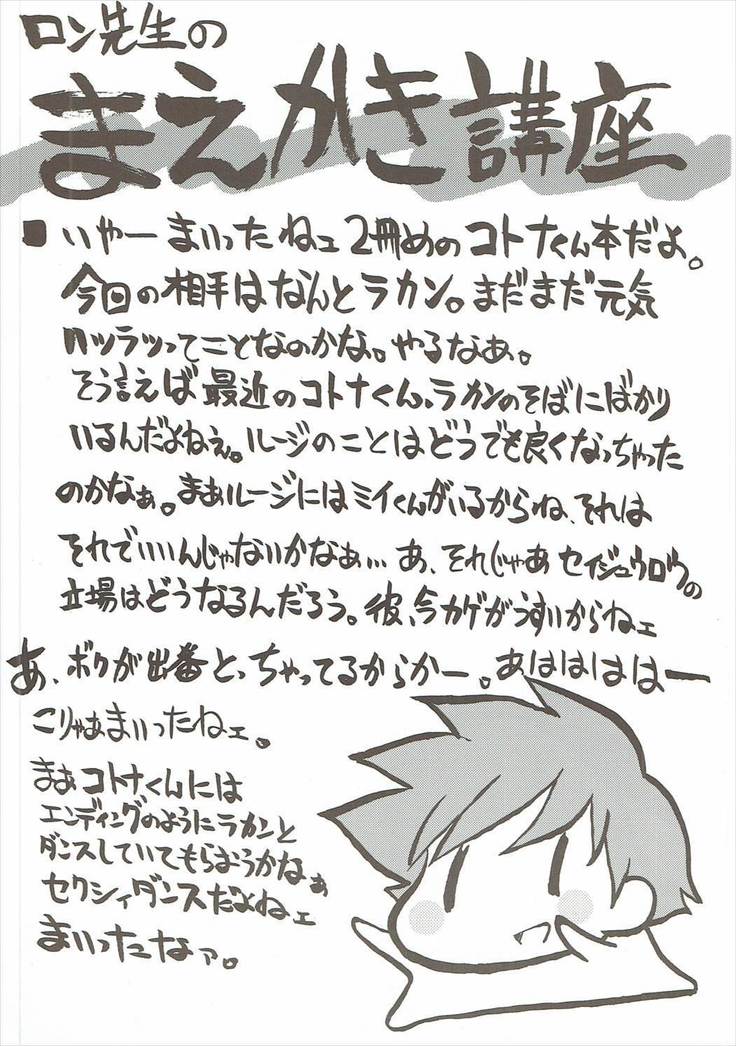 ロン先生の
まえかき講座
■ いやー まいったねェ 2冊めの コトナくん本だよ。
今回の相手はなんとラカン。まだまだ元気
ハツラツってことなのかな。やるなあ。
そう言えば最近のコトナくん、ラカンのそばにばかり
いるんだよねぇ。ルージのことはどうでも良くなっちゃった
のかなぁ。まぁルージにはミイくんがいるからね、それは
それでいいんじゃないかなぁ… あ、それじゃあ セイジュウロウの
立場はどうなるんだろう。彼、今カゲがうすいからねェ
あ、ボクが出番とっちゃってるからかー。あはははは―
こりゃあまいったねェ。
まぁコトナくんには
エンディングのようにラカンと
ダンスしていてもらおうかなぁ
セクシィダンスだよねェ
まいったなァ。